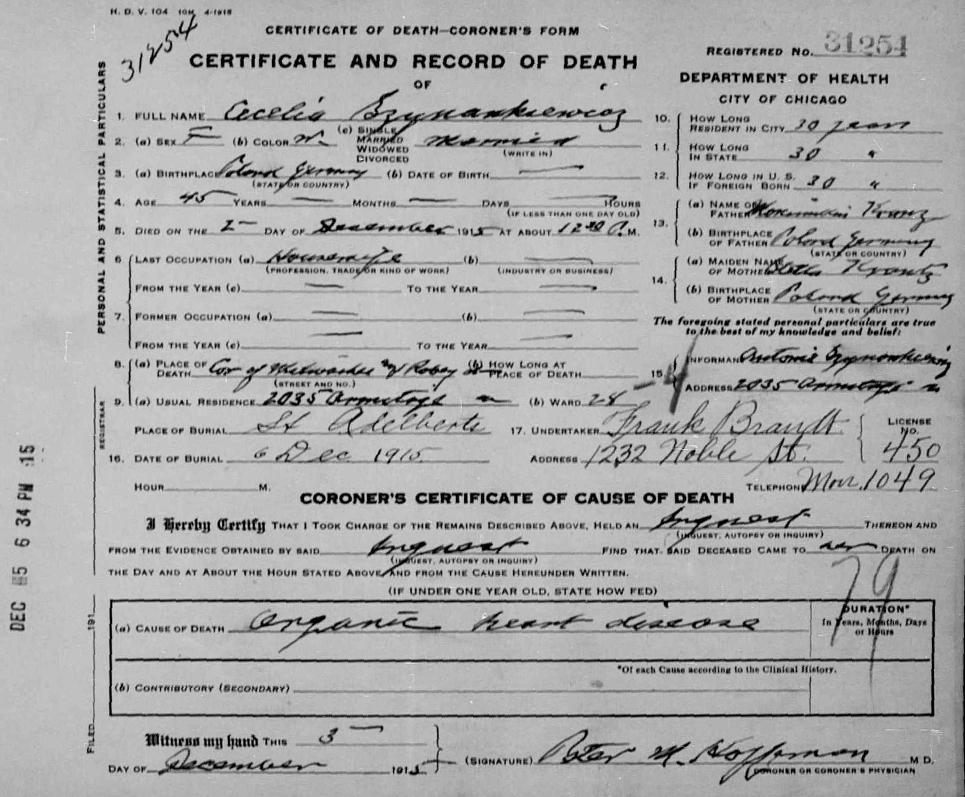 H. D. V. 104 10M 4-1915
CERTIFICATE OF DEATH—CORONER'S FORM
31254
REGISTERED No. 31254
CERTIFICATE AND RECORD OF DEATH
OF
DEPARTMENT OF HEALTH
CITY OF CHICAGO
PERSONAL AND STATISTICAL PARTICULARS
1. FULL NAME Cecelia Szynankiewicz
2. (a) SEX F (b) COLOR W. (c) SINGLE MARRIED WIDOWED DIVORCED Married
(WRITE IN)
3. (a) BIRTHPLACE Poland Germany (b) DATE OF BIRTH —
(STATE OR COUNTRY)
4. AGE 45 YEARS — MONTHS — DAYS — HOURS
(IF LESS THAN ONE DAY OLD)
5. DIED ON THE 2 DAY OF December 1915 AT ABOUT 12 30 P. M.
6 LAST OCCUPATION (a) Housewife (b) —
(PROFESSION, TRADE OR KIND OF WORK) (INDUSTRY OR BUSINESS)
FROM THE YEAR (c) — TO THE YEAR —
7. FORMER OCCUPATION (a) — (b) —
FROM THE YEAR (c) — TO THE YEAR —
8. (a) PLACE OF DEATH Cor of Milwaukee & Robey St (b) HOW LONG AT PLACE OF DEATH
(STREET AND NO.)
9. (a) USUAL RESIDENCE 2035 Armitage (b) WARD 28
10. HOW LONG RESIDENT IN CITY 30 years
11. HOW LONG IN STATE 30 "
12. HOW LONG IN U. S. IF FOREIGN BORN 30 "
13. (a) NAME OF FATHER Kranz
(b) BIRTHPLACE OF FATHER Poland Germany
(STATE OR COUNTRY)
14. (a) MAIDEN NAME OF MOTHER Krantz
(b) BIRTHPLACE OF MOTHER Poland Germany
(STATE OR COUNTRY)
The foregoing stated personal particulars are true
to the best of my knowledge and belief:
15. INFORMANT Antonie Szynankiewicz
4
ADDRESS 2035 Armitage
REGISTRAR
PLACE OF BURIAL St Adelberts
16. DATE OF BURIAL 6 Dec 1915
HOUR M.
17. UNDERTAKER Frank Brandt
ADDRESS 1232 Noble St.
LICENSE No. 450
TELEPHONE Mon. 1049
DEC 5 6 34 PM '15
CORONER'S CERTIFICATE OF CAUSE OF DEATH
I Hereby Certify THAT I TOOK CHARGE OF THE REMAINS DESCRIBED ABOVE, HELD AN Inquest THEREON AND
(INQUEST, AUTOPSY OR INQUIRY)
FROM THE EVIDENCE OBTAINED BY SAID Inquest FIND THAT SAID DECEASED CAME TO her DEATH ON
(INQUEST, AUTOPSY OR INQUIRY)
THE DAY AND AT ABOUT THE HOUR STATED ABOVE, AND FROM THE CAUSE HEREUNDER WRITTEN.
(IF UNDER ONE YEAR OLD, STATE HOW FED)
79
(a) CAUSE OF DEATH Organic heart disease
DURATION*
In Years, Months, Days
or Hours
*Of each Cause according to the Clinical History.
(b) CONTRIBUTORY (SECONDARY)
FILED 191
Witness my hand THIS 3
DAY OF December 1915
(SIGNATURE) Peter M. Hoffman M D.
CORONER OR CORONER'S PHYSICIAN